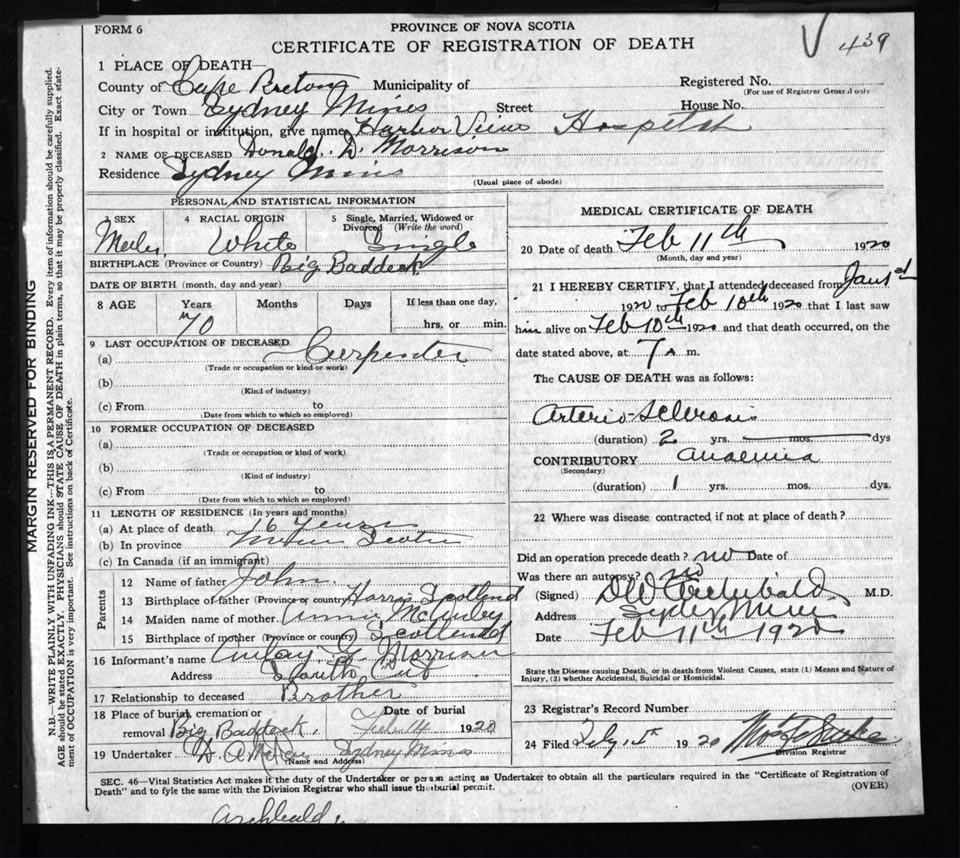 FORM 6
PROVINCE OF NOVA SCOTIA
CERTIFICATE OF REGISTRATION OF DEATH
439
1 PLACE OF DEATH—
County of Cape Breton Municipality of Registered No.
(For use of Registrar General only
City or Town Sydney Mines Street House No.
If in hospital or institution, give name Harbor View Hospital
2 NAME OF DECEASED Donald D. Morrison
Residence Sydney Mines
(Usual place of abode)
PERSONAL AND STATISTICAL INFORMATION
3 SEX 4 RACIAL ORIGIN 5 Single, Married, Widowed or Divorced (Write the word)
Male White Single
BIRTHPLACE (Province or Country) Big Baddeck
DATE OF BIRTH (month, day and year)
8 AGE Years Months Days If less than one day,
70 hrs. or min.
9 LAST OCCUPATION OF DECEASED
(a) Carpenter
(Trade or occupation or kind or work)
(b)
(Kind of industry)
(c) From to
(Date from which to which so employed)
10 FORMER OCCUPATION OF DECEASED
(a)
(Trade or occupation or kind of work)
(b)
(Kind of industry)
(c) From to
(Date from which to which so employed)
11 LENGTH OF RESIDENCE (In years and months)
(a) At place of death 16 years
(b) In province Nova Scotia
(c) In Canada (if an immigrant)
Parents
12 Name of father John.
13 Birthplace of father (Province or country) Harris Scotland
14 Maiden name of mother Annie McAuley
15 Birthplace of mother (Province or country) Scotland
16 Informant's name Aulay Morrison
Address South
17 Relationship to deceased Brother
18 Place of burial, cremation or removal Big Baddeck. Date of burial Feb 14 1920
19 Undertaker Sydney Mines
(Name and Address)
MEDICAL CERTIFICATE OF DEATH
20 Date of death Feb 11th 1920
(Month, day and year)
21 I HEREBY CERTIFY, that I attended deceased from Jan
1920 to Feb 10th 1920 that I last saw
him alive on Feb 10th 1920 and that death occurred, on the
date stated above, at 7 A m.
The CAUSE OF DEATH was as follows:
Arterio-Sclerosis
(duration) 2 yrs. mos. dys
CONTRIBUTORY Anaemia
(Secondary)
(duration) 1 yrs. mos. dys.
22 Where was disease contracted if not at place of death?
Did an operation precede death? no Date of
Was there an autopsy? no
(Signed) DW Archibald M.D.
Address Sydney Mines
Date Feb 11th 1920
State the Disease causing Death, or in death from Violent Causes, state (1) Means and Nature of
Injury, (2) whether Accidental, Suicidal or Homicidal.
23 Registrar's Record Number
24 Filed 1920
Division Registrar
SEC. 46—Vital Statistics Act makes it the duty of the Undertaker or person acting as Undertaker to obtain all the particulars required in the "Certificate of Registration of
Death" and to fyle the same with the Division Registrar who shall issue the burial permit.
(OVER)
Archbald
MARGIN RESERVED FOR BINDING
N.B.—WRITE PLAINLY WITH UNFADING INK—THIS IS A PERMANENT RECORD. Every item of information should be carefully supplied.
AGE should be stated EXACTLY. PHYSICIANS should STATE CAUSE OF DEATH in plain terms, so that it may be properly classified. Exact state-
ment of OCCUPATION is very important. See instructions on back of Certificate.